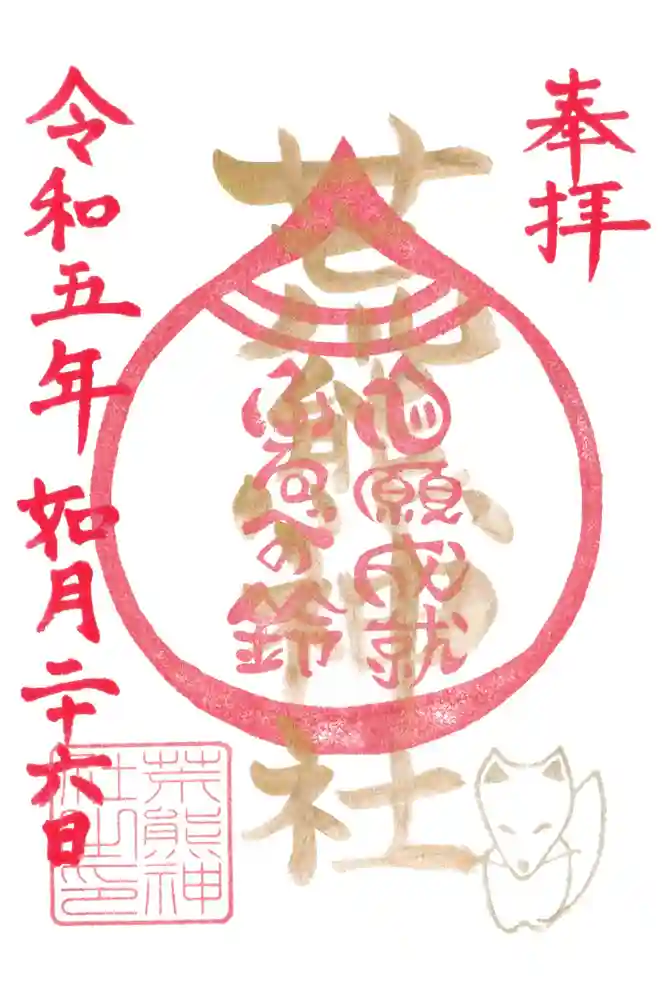 奉拝
荒熊神社
願成就
の鈴
令和五年 如月二十六日
荒熊神
社之印